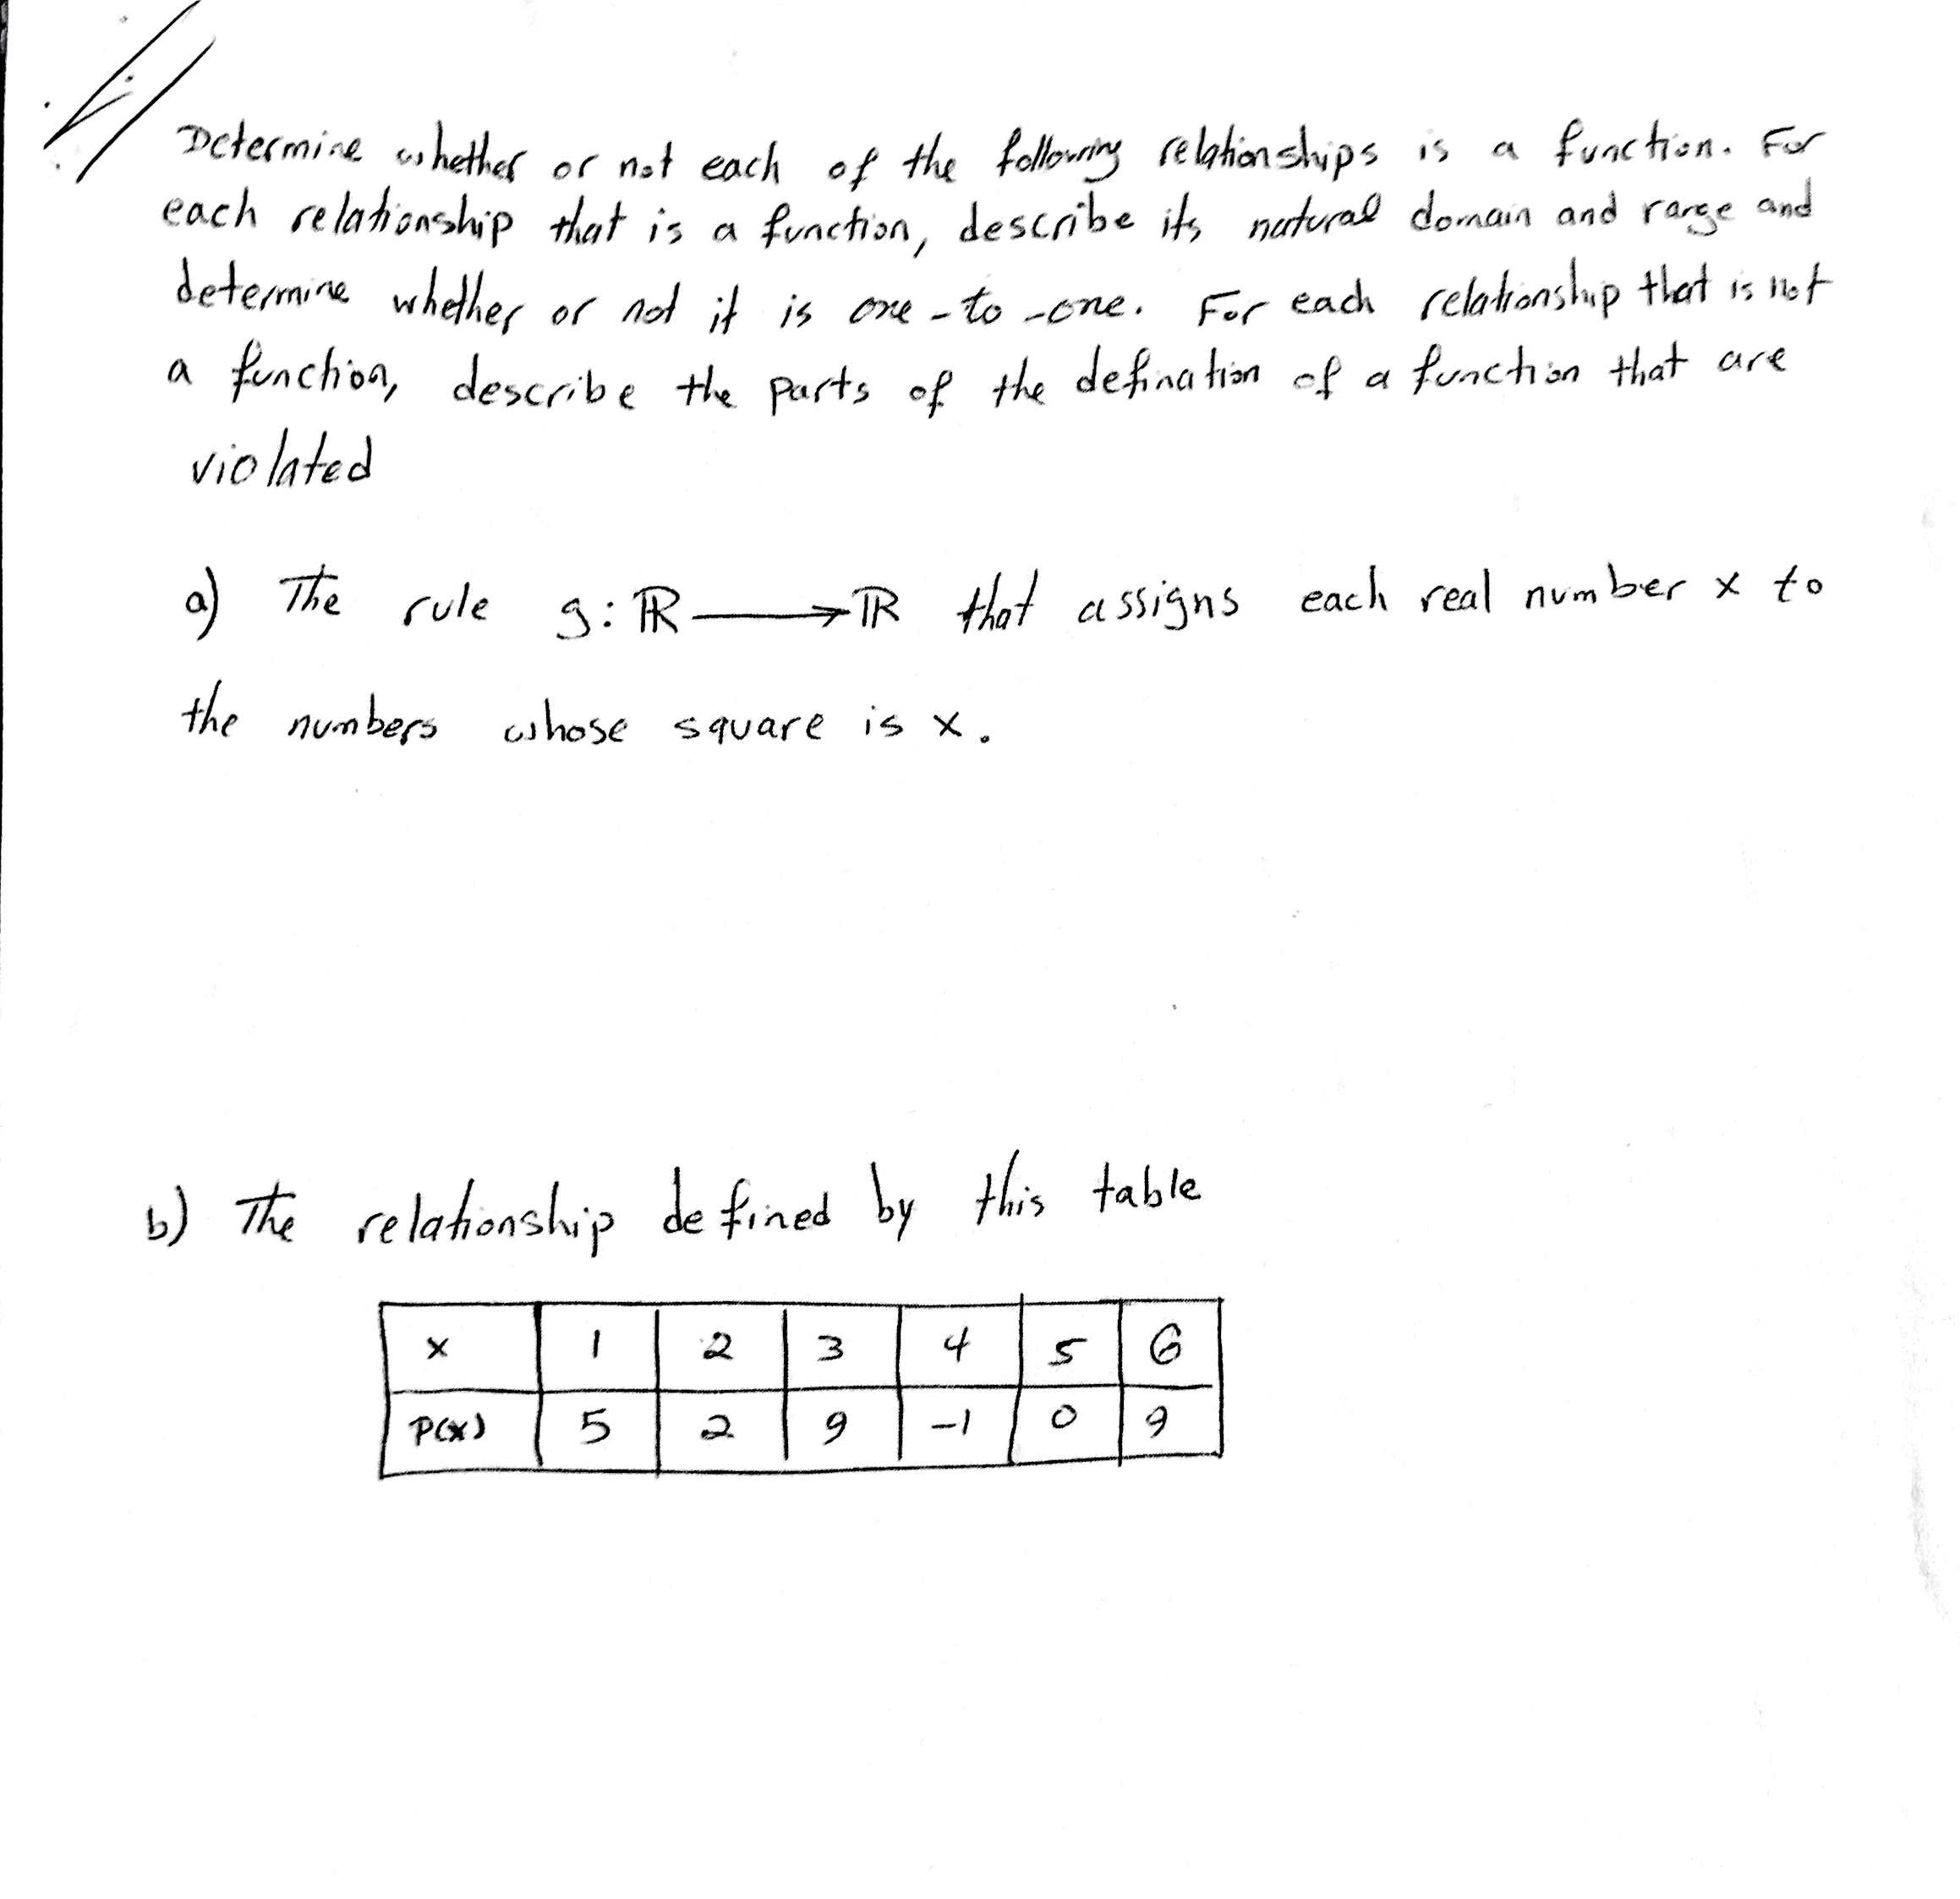 Determine whether or not each of the following relationships is a function. For
each relationship that is a function, describe its natural domain and range and
determine whether or not it is one-to-one. For each relationship that is not
a function, describe the parts of the defination of a function that are
violated
a) The rule g: ℝ ⟶ ℝ that assigns each real number x to
the numbers whose square is x.
b) The relationship defined by this table
x 1 2 3 4 5 6
P(x) 5 2 9 -1 0 9